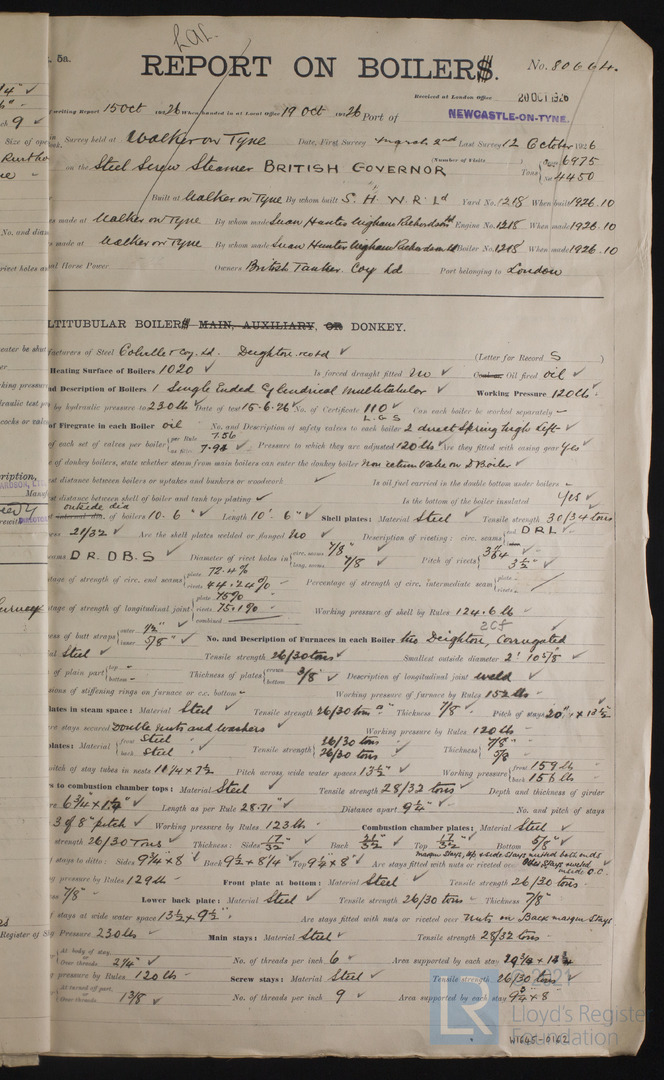 Lar.
5a.
REPORT ON BOILERS.
No. 80664.
Received at London Office 20 OCT 1926
writing Report 15 Oct 1926 When handed in at Local Office 19 Oct 1926 Port of NEWCASTLE-ON-TYNE.
Survey held at Walker on Tyne Date, First Survey Last Survey 12 October 1926
(Number of Visits )
on the Steel Screw Steamer BRITISH GOVERNOR Tons Gross 6975 Net 4450
Built at Walker on Tyne By whom built S. H. W. R. Ld Yard No. 1218 When built 1926.10
s made at Walker on Tyne By whom made Swan Hunter Wigham Richardson Ld Engine No. 1218 When made 1926.10
s made at Walker on Tyne By whom made Swan Hunter Wigham Richardson Ld Boiler No. 1218 When made 1926.10
al Horse Power Owners British Tanker Coy Ld Port belonging to London
LTITUBULAR BOILERS MAIN, AUXILIARY, OR DONKEY.
facturers of Steel Colville & Coy. Ld. Deighton (Letter for Record S )
Heating Surface of Boilers 1020 Is forced draught fitted No Coal or Oil fired oil
nd Description of Boilers 1 Single Ended Cylindrical Multitubular Working Pressure 120 lb
by hydraulic pressure to 230 lb Date of test 15-6-26 No. of Certificate 110 L.G.S Can each boiler be worked separately -
of Firegrate in each Boiler oil No. and Description of safety valves to each boiler 2 direct Spring high lift
of each set of valves per boiler per Rule 7.56 as fitted 7.94 Pressure to which they are adjusted 120 lb Are they fitted with easing gear Yes
e of donkey boilers, state whether steam from main boilers can enter the donkey boiler Non return valve on D Boiler
st distance between boilers or uptakes and bunkers or woodwork Is oil fuel carried in the double bottom under boilers -
st distance between shell of boiler and tank top plating Is the bottom of the boiler insulated Yes
outside dia of boilers 10. 6" Length 10'. 6" Shell plates: Material Steel Tensile strength 30/34 tons
ess 21/32 Are the shell plates welded or flanged No Description of riveting: circ. seams end D.R.L
eams D R. D B. S Diameter of rivet holes in circ. seams 7/8" long. seams 7/8" Pitch of rivets 3 1/2"
tage of strength of circ. end seams plate 72.4% rivets 44.24% Percentage of strength of circ. intermediate seam plate rivets
tage of strength of longitudinal joint plate 75% rivets 75.1% combined Working pressure of shell by Rules 124.6 lb
ess of butt straps outer 1/2" inner 5/8" No. and Description of Furnaces in each Boiler two Deighton, Corrugated 2CF
al Steel Tensile strength 26/30 tons Smallest outside diameter 2' 10 5/8
of plain part top bottom Thickness of plates crown bottom 3/8" Description of longitudinal joint weld
sions of stiffening rings on furnace or c.c. bottom - Working pressure of furnace by Rules 152 lb
lates in steam space: Material Steel Tensile strength 26/30 tons Thickness 7/8" Pitch of stays 20" × 13 1/2
are stays secured Double nuts and washers Working pressure by Rules 120 lb
plates: Material front Steel back Steel Tensile strength 26/30 tons 26/30 tons Thickness 7/8" 5/8
pitch of stay tubes in nests 10 1/4 × 7 1/2 Pitch across wide water spaces 13 1/2" Working pressure front 159 lb back 156 lb
s to combustion chamber tops: Material Steel Tensile strength 28/32 tons Depth and thickness of girder
re 6 3/4 × 1 1/4" Length as per Rule 28.71" Distance apart 9 1/4" No. and pitch of stays
3 of 8" pitch Working pressure by Rules 123 lb Combustion chamber plates: Material Steel
strength 26/30 tons Thickness: Sides 17/32 Back 21/32 Top 17/32" Bottom 5/8"
stays to ditto: Sides 9 3/4" × 8" Back 9 1/2 × 8 1/4 Top 9 1/4 × 8" Are stays fitted with nuts or riveted over margin stays, top & side stays nutted both ends Other stays riveted inside C.C.
pressure by Rules 129 lb Front plate at bottom: Material Steel Tensile strength 26/30 tons
ess 7/8" Lower back plate: Material Steel Tensile strength 26/30 tons Thickness 7/8"
f stays at wide water space 13 1/2 × 9 1/2" Are stays fitted with nuts or riveted over Nuts on Back margin stays
Pressure 230 lb Main stays: Material Steel Tensile strength 28/32 tons
At body of stay, or Over threads 2 1/4" No. of threads per inch 6 Area supported by each stay
pressure by Rules 120 lb Screw stays: Material Steel Tensile strength 26/30 tons
At turned off part, or Over threads 1 3/8 No. of threads per inch 9 Area supported by each stay 9 3/4 × 8
LR
© 2021
Lloyd's Register
Foundation
W1645-0162